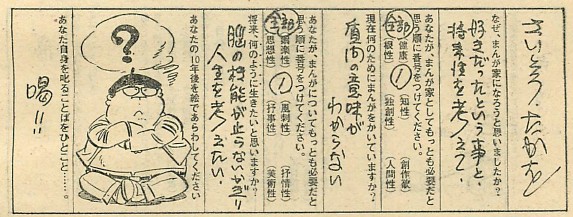 さいとう・たかを
なぜ、まんが家になろうと思いましたか?
好きだったという事と、
将来性を考えて。
あなたが、まんが家としてもっとも必要だと
思う順に番号をつけてください。
全部
(健康) (知性) (創作欲)
(根性) 1 (独創性) (人間性)
現在何のためにまんがをかいていますか?
質問の意味が
わからない
あなたが、まんがについてもっとも必要だと
思う順に番号をつけてください。
全部
(娯楽性) (風刺性) (抒情性)
(思想性) 1 (抒事性) (美術性)
将来、何のように生きたいと思いますか?
脳の機能が止らないかぎり
人生を考えたい.
あなたの10年後を絵であらわしてください
?
あなた自身を叱ることばをひとこと……。
喝!!